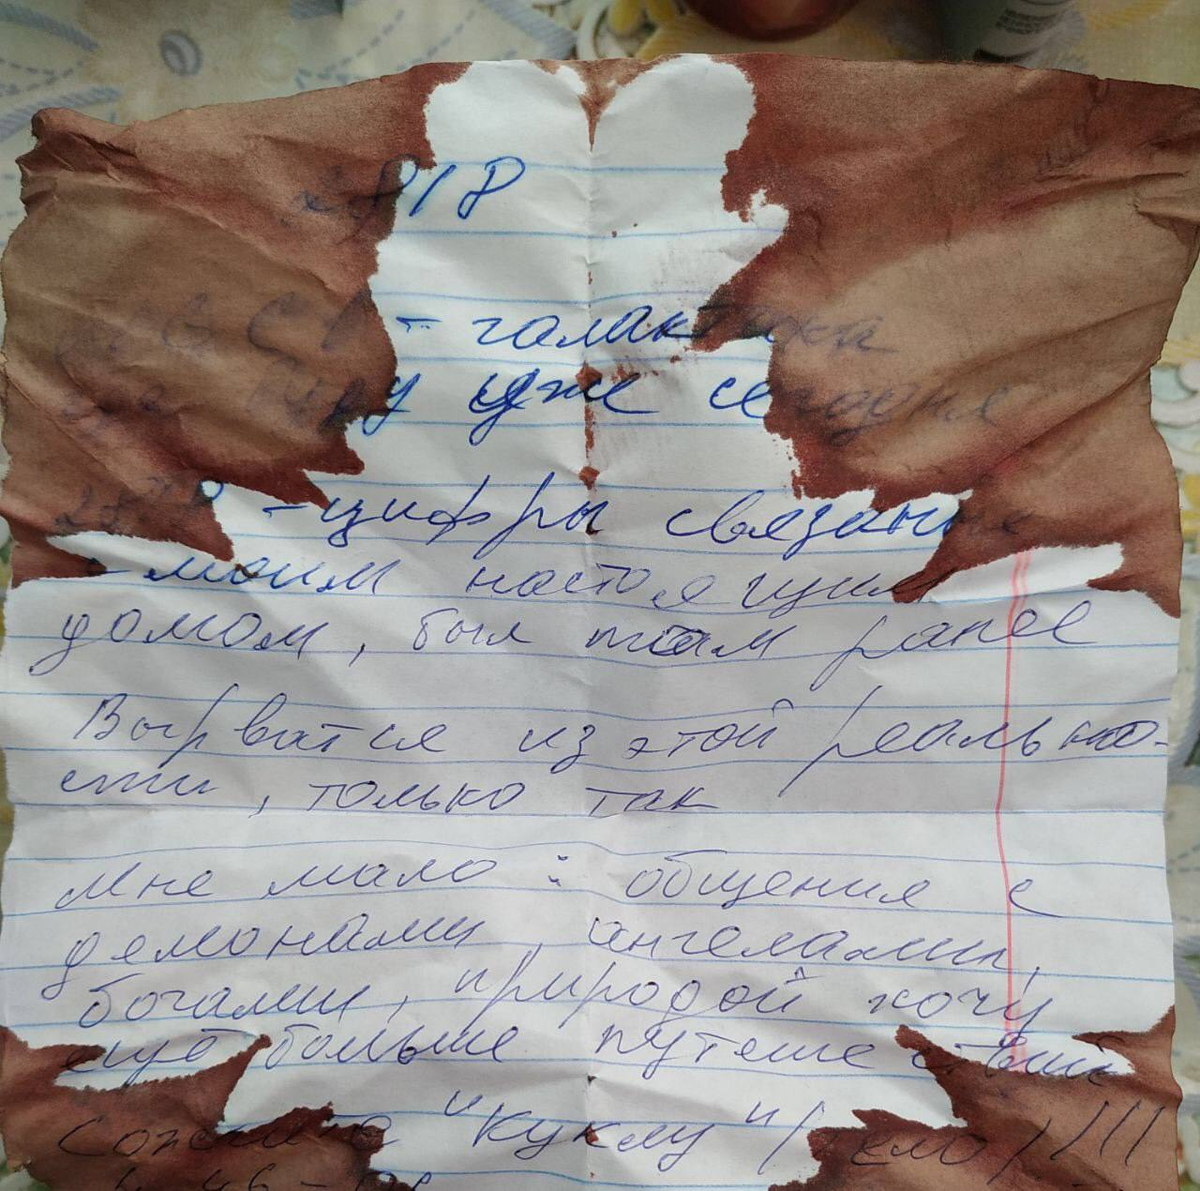 2818
- галактика
уже сегодня
- цифры связаны
с моим настоящим
домом, был там ранее
Вырватся из этой реально-
сти, только так
Мне мало: общения с
демонами, ангелами,
богами, природой хочу
ещё больше путешествий
Сожгите "Куклу" (тело)!!!